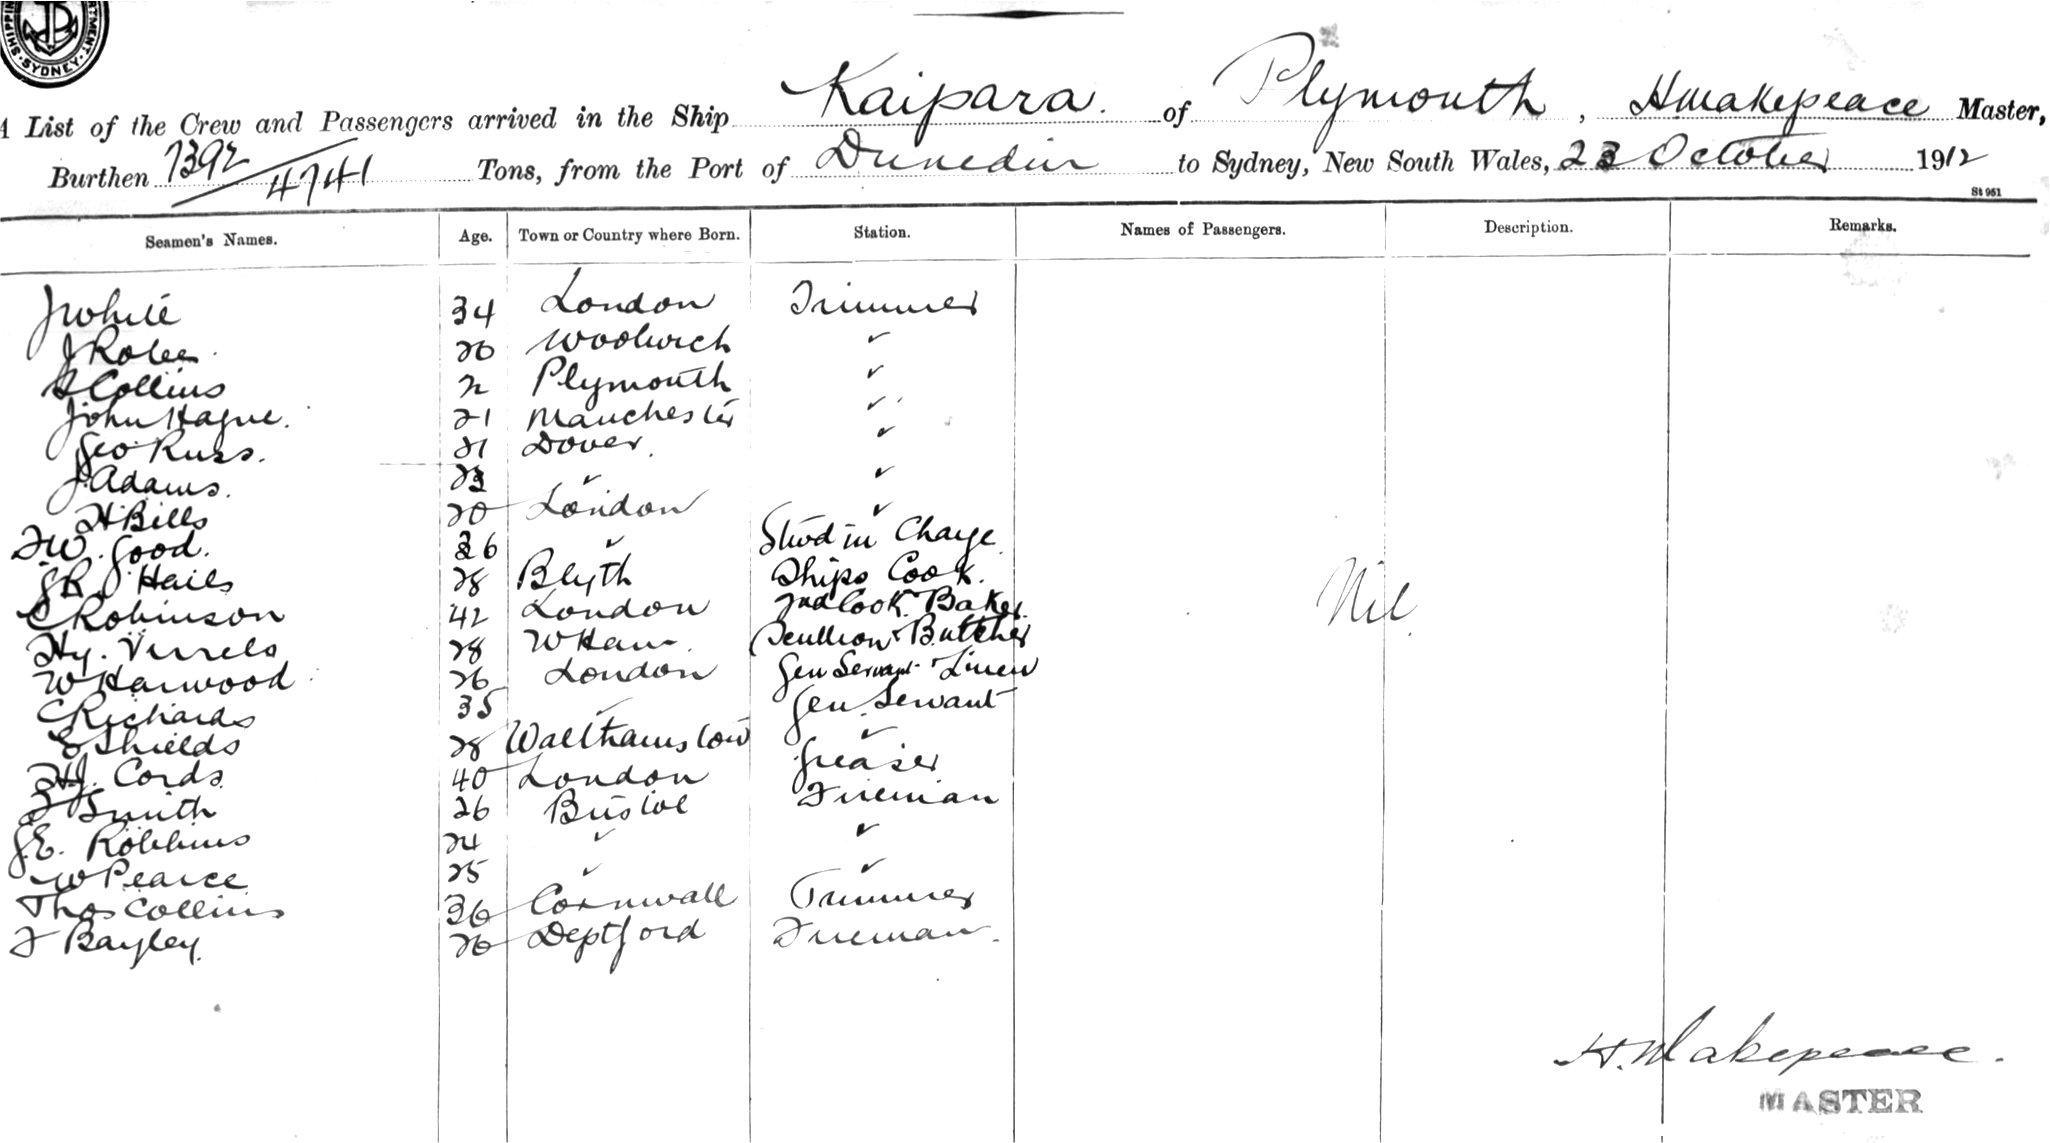 SHIPPING DEPARTMENT. SYDNEY.
A List of the Crew and Passengers arrived in the Ship Kaipara. of Plymouth, H Makepeace Master,
Burthen 7392/4741 Tons, from the Port of Dunedin to Sydney, New South Wales, 23 October 1912
St 951
Seamen's Names. Age. Town or Country where Born. Station. Names of Passengers. Description. Remarks.
J White 34 London Trimmer
J 26 Woolwich ✓
Collins Plymouth ✓
John Hague. 21 Manchester ✓
Geo Russ. 21 Dover. ✓
J. Adams. 23 ✓ ✓
H Bills 20 London ✓
F W. Good. 36 ✓ Stwd in Charge
J R Hails 28 Blyth Ships Cook.
C Robinson 42 London 2nd Cook. Baker.
Hy. 28 W Ham. Scullion & Butcher
W Harwood 26 London Gen Servant Linen
C Richards 35 ✓ Gen Servant
E Shields 28 Walthamstow ✓
H J. Cords 40 London Greaser
Smith 26 Bristol Fireman
J. E. Robbins 24 ✓ ✓
W Pearce 25 ✓ ✓
Thos Collins 36 Cornwall Trimmer
F Bayley. 26 Deptford Fireman.
Nil.
H. Makepeace.
MASTER